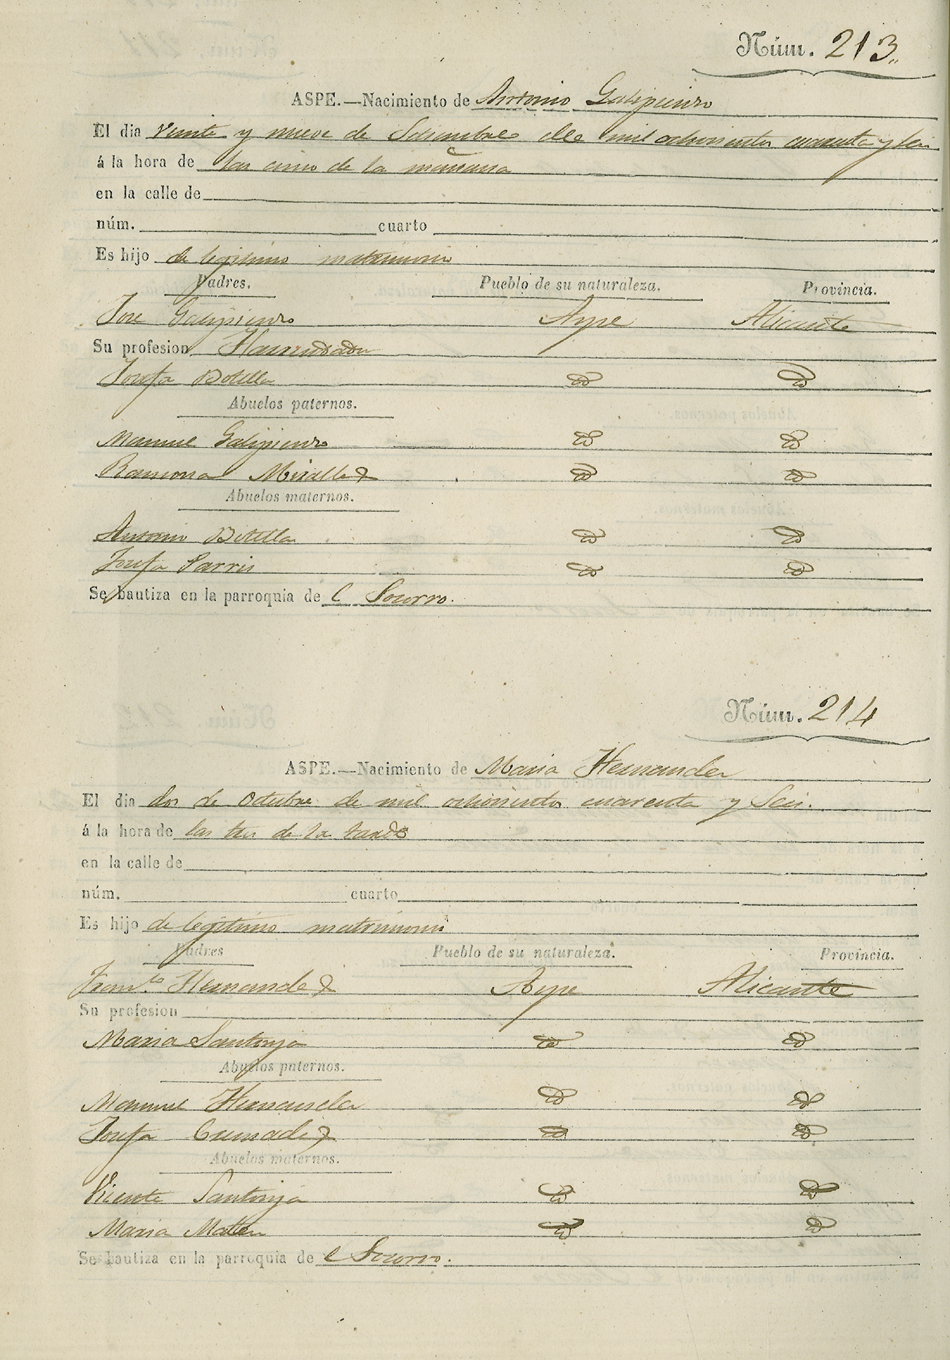 Núm. 213.
ASPE.—Nacimiento de Antonio Galipienzo
El dia veinte y nueve de Setiembre de mil ochocientos cuarenta y seis
á la hora de las cinco de la mañana
en la calle de
núm. cuarto
Es hijo de legitimo matrimonio
Padres. Pueblo de su naturaleza. Provincia.
Jose Galipienzo Aspe Alicante
Su profesion Hacendado
Josefa Botella id id
Abuelos paternos.
Manuel Galipienzo id id
Ramona Miralles id id
Abuelos maternos.
Antonio Botella id id
Josefa id id
Se bautiza en la parroquia de l Socorro.
Núm. 214
ASPE.—Nacimiento de Maria Hernandez
El dia dos de Octubre de mil ochocientos cuarenta y Seis.
á la hora de las tres de la tarde
en la calle de
núm. cuarto
Es hijo de legitimo matrimonio
Padres Pueblo de su naturaleza. Provincia.
Franco. Hernandez Aspe Alicante
Su profesion
Maria Santonja id id
Abuelos paternos.
Manuel Hernandez id id
Josefa id id
Abuelos maternos.
Vicente Santonja id id
Maria id id
Se bautiza en la parroquia de l Socorro.